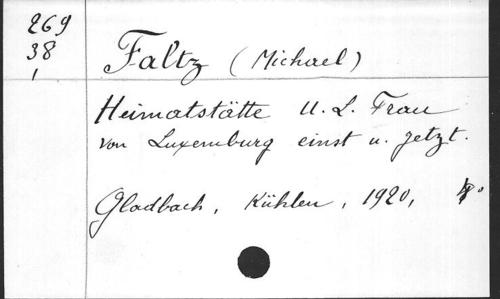 269
38
1
Faltz (Michael)
Heimatstätte U. L. Frau
von Luxemburg einst u. jetzt.
Gladbach, Kühlen, 1920,